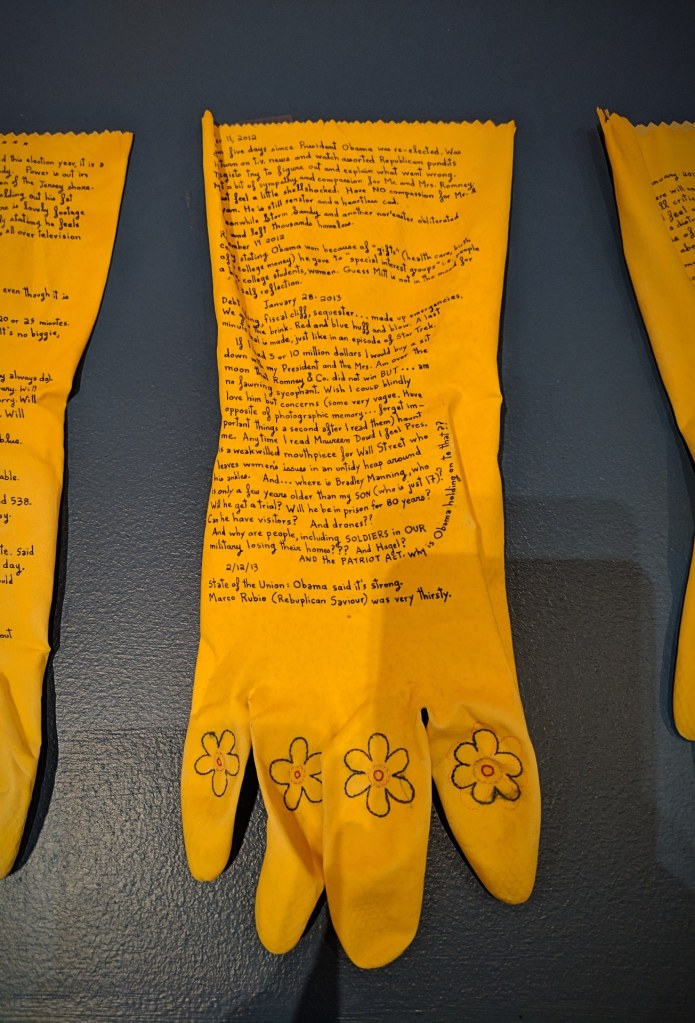 d this election year, it is a
dy. Power is out in
on of the Jersey shore.
olding out his fat
re is lovely footage
ly stating he feels
all over television
even though it is
20 or 25 minutes.
It's no biggie,
y always do).
ary. Will
orry. Will
Will
blue.
able.
d 538.
y.
te. Said
day.
ould
out
11, 2012
five days since President Obama was re-elected. Was
on t.v. news and watch assorted Republican pundits
try to figure out and explain what went wrong.
a bit of sympathy and compassion for Mr. and Mrs. Romney
feel a little shellshocked. Have NO compassion for Mr.
He is still senator and a heartless cad.
Storm Sandy and another nor'easter obliterated
and left thousands homeless.
14 2012
stating Obama won because of "gifts" (health care, birth
college money) he gave to "special interest groups" i.e. people
college students, women. Guess Mitt is not in the mood for
self reflection.
January 28. 2013
fiscal cliff, sequester... made up emergencies.
the brink. Red and blue huff and blow. A last
is made, just like in an episode of Star Trek.
If 5 or 10 million dollars I would buy a sit
down my President and the Mrs. Am over the
moon that Romney & Co. did not win BUT... am
no fawning sycophant. Wish I could blindly
love him but concerns (some very vague. Have
opposite of photographic memory... forget im-
portant things a second after I read them) haunt
me. Anytime I read Maureen Dowd I feel Pres.
is a weak willed mouthpiece for Wall Street who
leaves women's issues in an untidy heap around
his ankles. And... where is Bradley Manning, who
is only a few years older than my SON (who is just 17)?
Will he get a trial? Will he be in prison for 80 years?
Can he have visitors? And drones??
And why are people, including SOLDIERS in OUR
military losing their homes??? And Hagel?
AND the PATRIOT ACT. WHY is Obama holding on to that??
2/12/13
State of the Union: Obama said it's strong.
Marco Rubio (Rebuplican Saviour) was very thirsty.